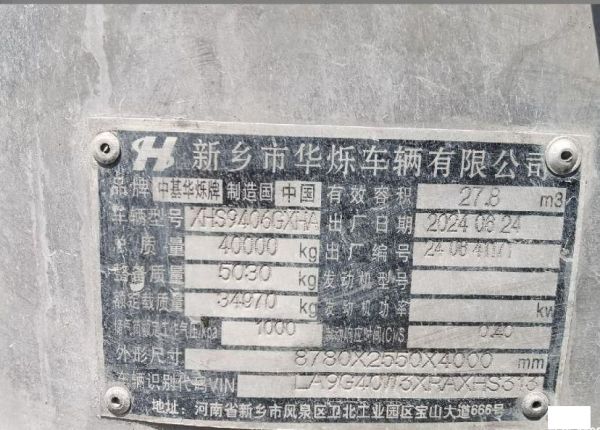 新乡市华烁车辆有限公司
品牌 中基华烁牌 制造国 中国 有效容积 27.8 m3
车辆型号 XHS9406GXHA 出厂日期 2024 06 24
质量 40000 kg 出厂编号
整备质量 5030 kg 发动机型号
额定载质量 34970 kg 发动机功率 kw
1000 0.40
外形尺寸 8780X2550X4000 mm
车辆识别代码VIN
地址：河南省新乡市凤泉区卫北工业园区宝山大道666号